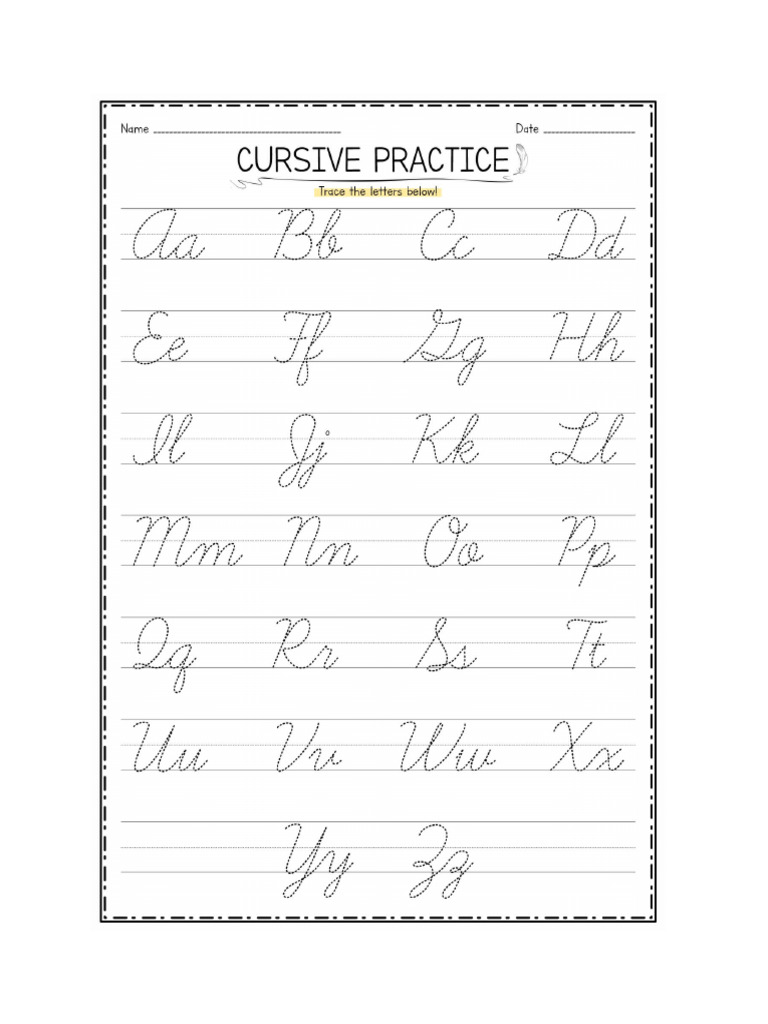 Name ______________________ Date ______________
CURSIVE PRACTICE
Trace the letters below!
Aa Bb Cc Dd
Ee Ff Gg Hh
Il Jj Kk Ll
Mm Nn Oo Pp
Qq Rr Ss Tt
Uu Vv Ww Xx
Yy Zz